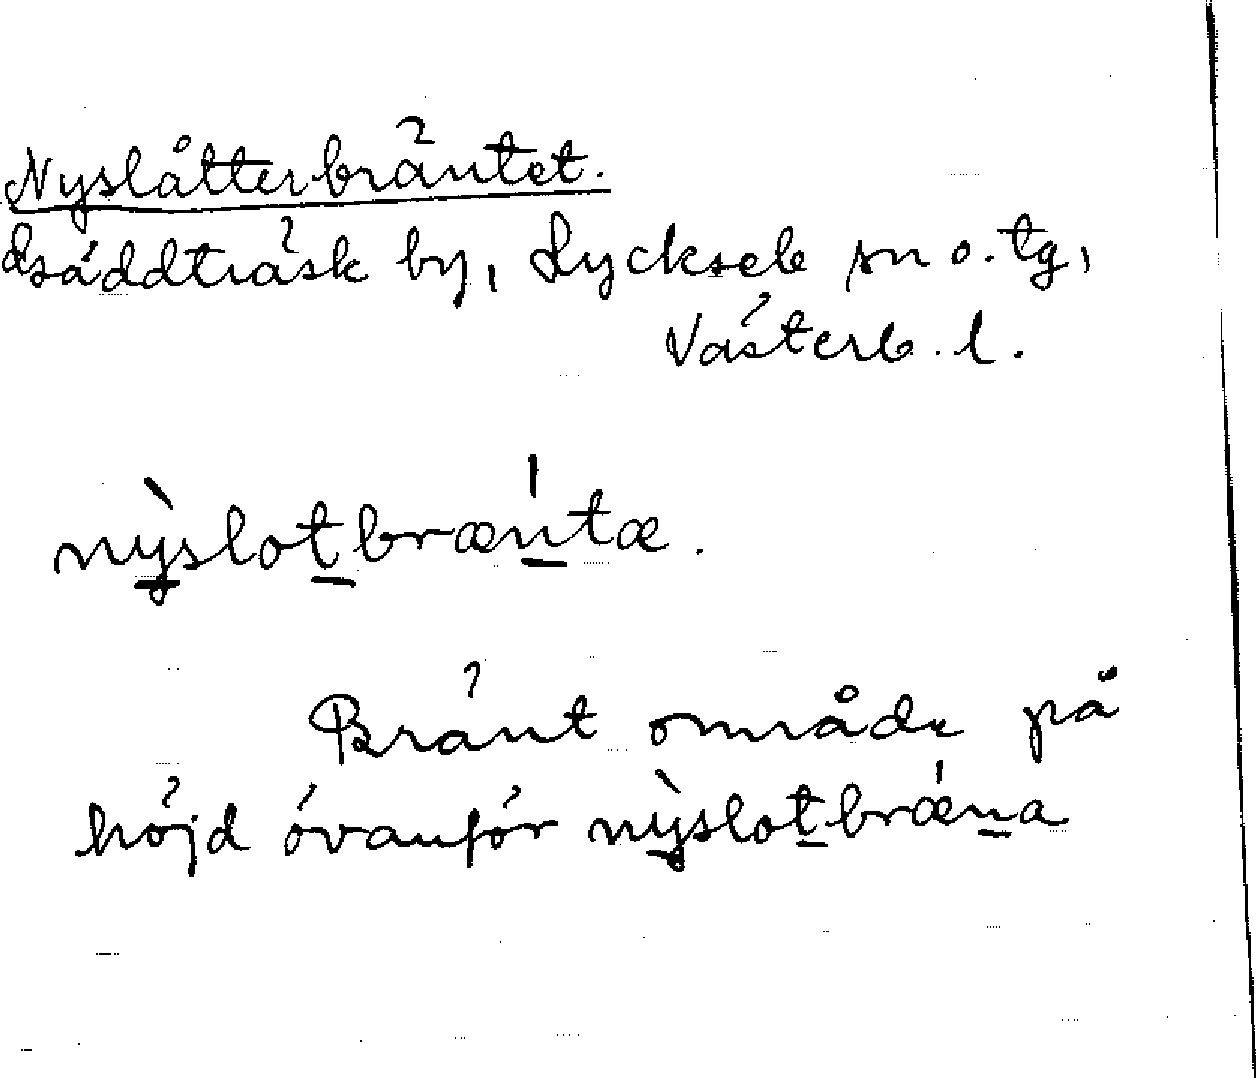 Nyslåtterbräntet.
Råddträsk by, Lycksele sn o. tg,
Västerb. l.
nỳslot̲bræń̲tæ.
Bränt område på
höjd ovanför nỳ̲slot̲bræń̲a